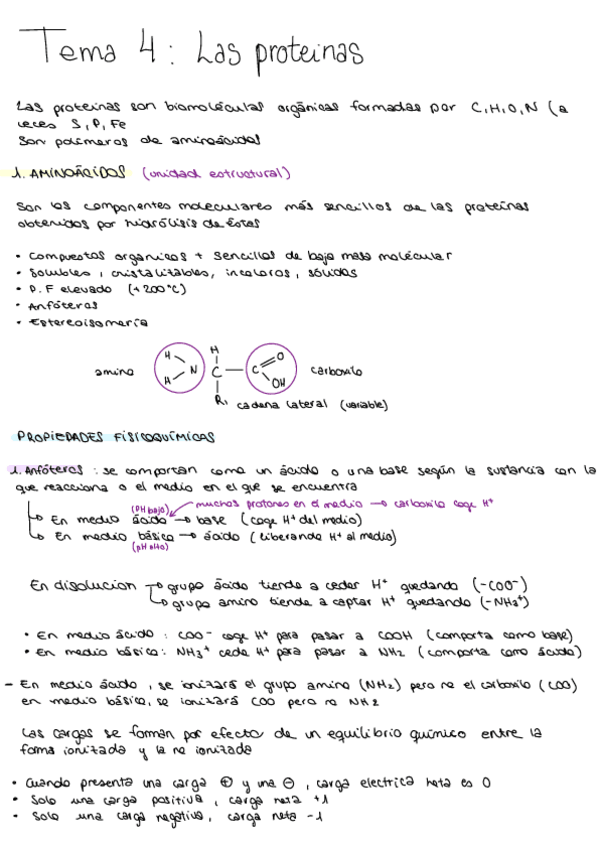 Tema 4: Las proteínas
Las proteínas son biomoléculas orgánicas formadas por C,H,O,N (a
veces S,P,Fe
Son polímeros de aminoácidos
1. AMINOÁCIDOS (unidad estructural)
Son los componentes moleculares más sencillos de las proteínas
obtenidos por hidrólisis de éstas
• Compuestos orgánicos + sencillos de baja masa molecular
• Solubles, cristalizables, incoloros, sólidos
• P.F elevado (+200°C)
• Anfóteros
• Estereoisomería
amino H H N H C R1 C O OH carboxilo
cadena lateral (variable)
PROPIEDADES FÍSICOQUÍMICAS
1. Anfóteros : se comportan como un ácido o una base según la sustancia con la
que reacciona o el medio en el que se encuentra
(pH bajo) muchos protones en el medio → carboxilo coge H⁺
↳ En medio ácido → base (coge H⁺ del medio)
↳ En medio básico → ácido (liberando H⁺ al medio)
(pH alto)
En disolución → grupo ácido tiende a ceder H⁺ quedando (-COO⁻)
↳ grupo amino tiende a captar H⁺ quedando (-NH₃⁺)
• En medio ácido : COO⁻ coge H⁺ para pasar a COOH (comporta como base)
• En medio básico : NH₃⁺ cede H⁺ para pasar a NH₂ (comporta como ácido)
- En medio ácido, se ionizará el grupo amino (NH₂) pero no el carboxilo (COO)
en medio básico, se ionizará COO pero no NH2
Las cargas se forman por efecto de un equilibrio químico entre la
forma ionizada y la no ionizada
• Cuando presenta una carga ⊕ y una ⊖, carga electrica neta es 0
• Solo una carga positiva, carga neta +1
• Solo una carga negativa, carga neta -1